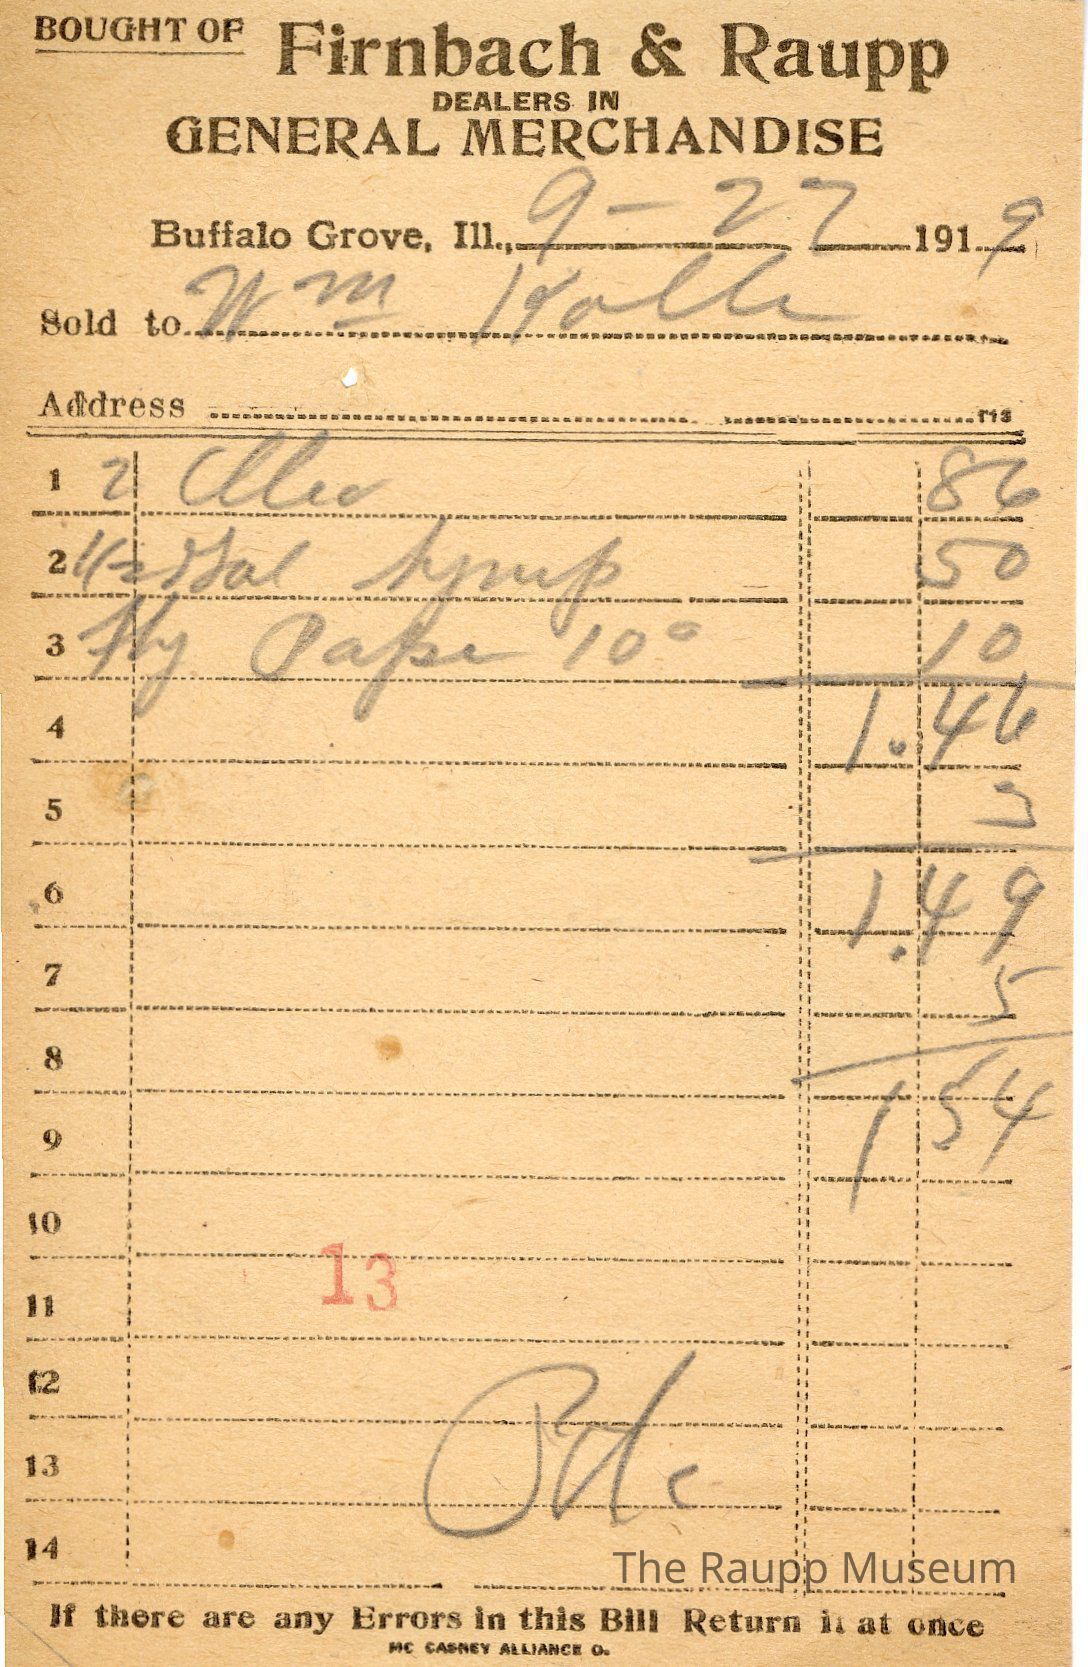 BOUGHT OF Firnbach & Raupp
DEALERS IN
GENERAL MERCHANDISE
Buffalo Grove, Ill., 9 - 27 1919
Sold to Wm Kolle
Address
1 2 86
2 1/2 Gal Syrup 50
3 Fly Pape 10c 10
4 1.46
5 3
6 1.49
7 5
8
9 1 54
10
13
11
12
13
14
The Raupp Museum
If there are any Errors in this Bill Return it at once
MC CASKEY ALLIANCE O.